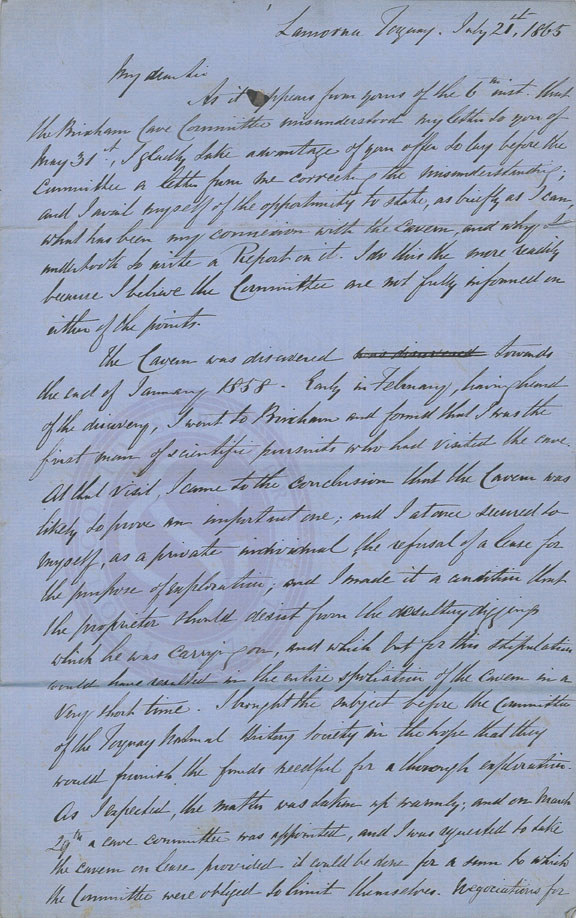 Lamorna Torquay. July 21st, 1865
My dear Sir
As it appears from yours of the 6th inst. that
the Brixham Cave Committee misunderstood my letter to you of
May 31st, I gladly take advantage of your offer to lay before the
Committee a letter from me correcting the misunderstanding;
and I avail myself of the opportunity to state, as briefly as I can,
what has been my connexion with the cavern, and why I
undertook to write a Report on it. I do this the more readily
because I believe the Committee are not fully informed on
either of the points.
The Cavern was discovered was discovered towards
the end of January 1858. Early in February, having heard
of the discovery, I went to Brixham and found that I was the
first man of scientific pursuits who had visited the cave.
At that visit, I came to the conclusion that the Cavern was
likely to prove an important one; and I at once secured to
myself, as a private individual, the refusal of a lease for
the purpose of exploration; and I made it a condition that
the proprietor should desist from the desultory diggings
which he was carrying on, and which but for this stipulation
would have resulted in the entire spoliation of the cavern in a
very short time. I brought the subject before the Committee
of the Torquay Natural History Society in the hope that they
would furnish the funds needful for a thorough exploration.
As I expected, the matter was taken up warmly; and on March
29th a cave committee was appointed, and I was requested to take
the cavern on lease provided it could be done for a sum to which
the Committee were obliged to limit themselves. Negociations for